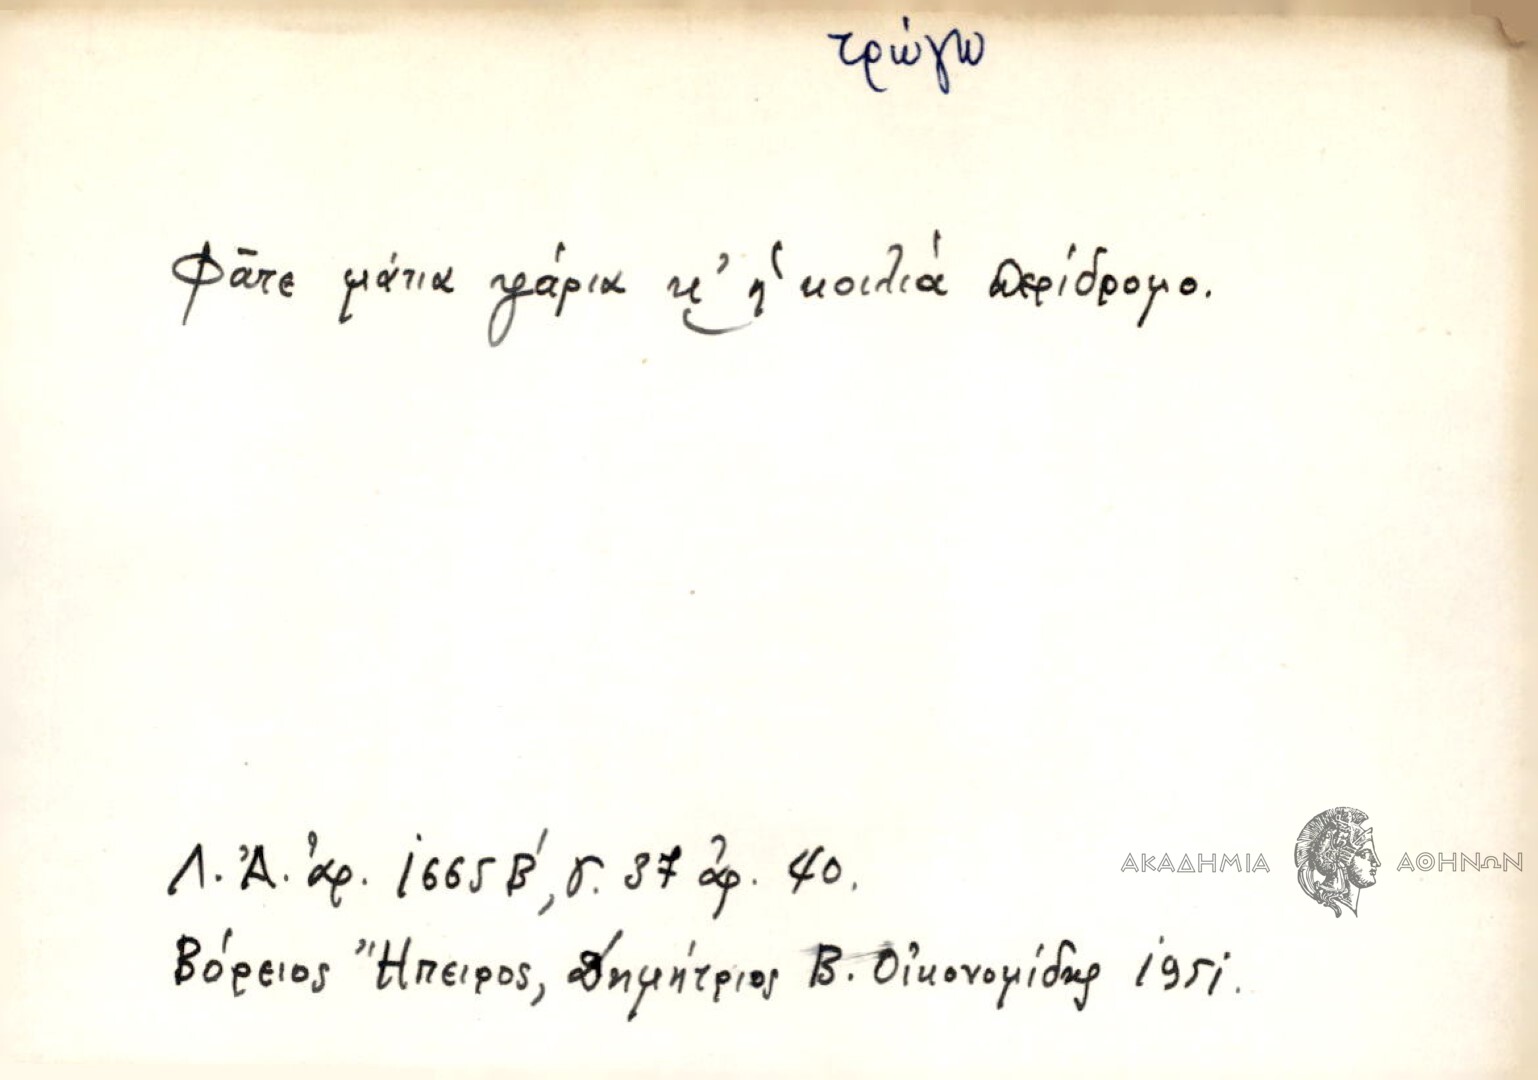 τρώγω
Φᾶτε μάτια ψάρια κ' ἡ κοιλιά περίδρομο.
Λ.Ἀ. ἀρ. 1665 Β', σ. 37 ἀρ. 40.
Βόρειος Ἤπειρος, Δημήτριος Β. Οἰκονομίδης 1951.
ΑΚΑΔΗΜΙΑ ΑΘΗΝΩΝ